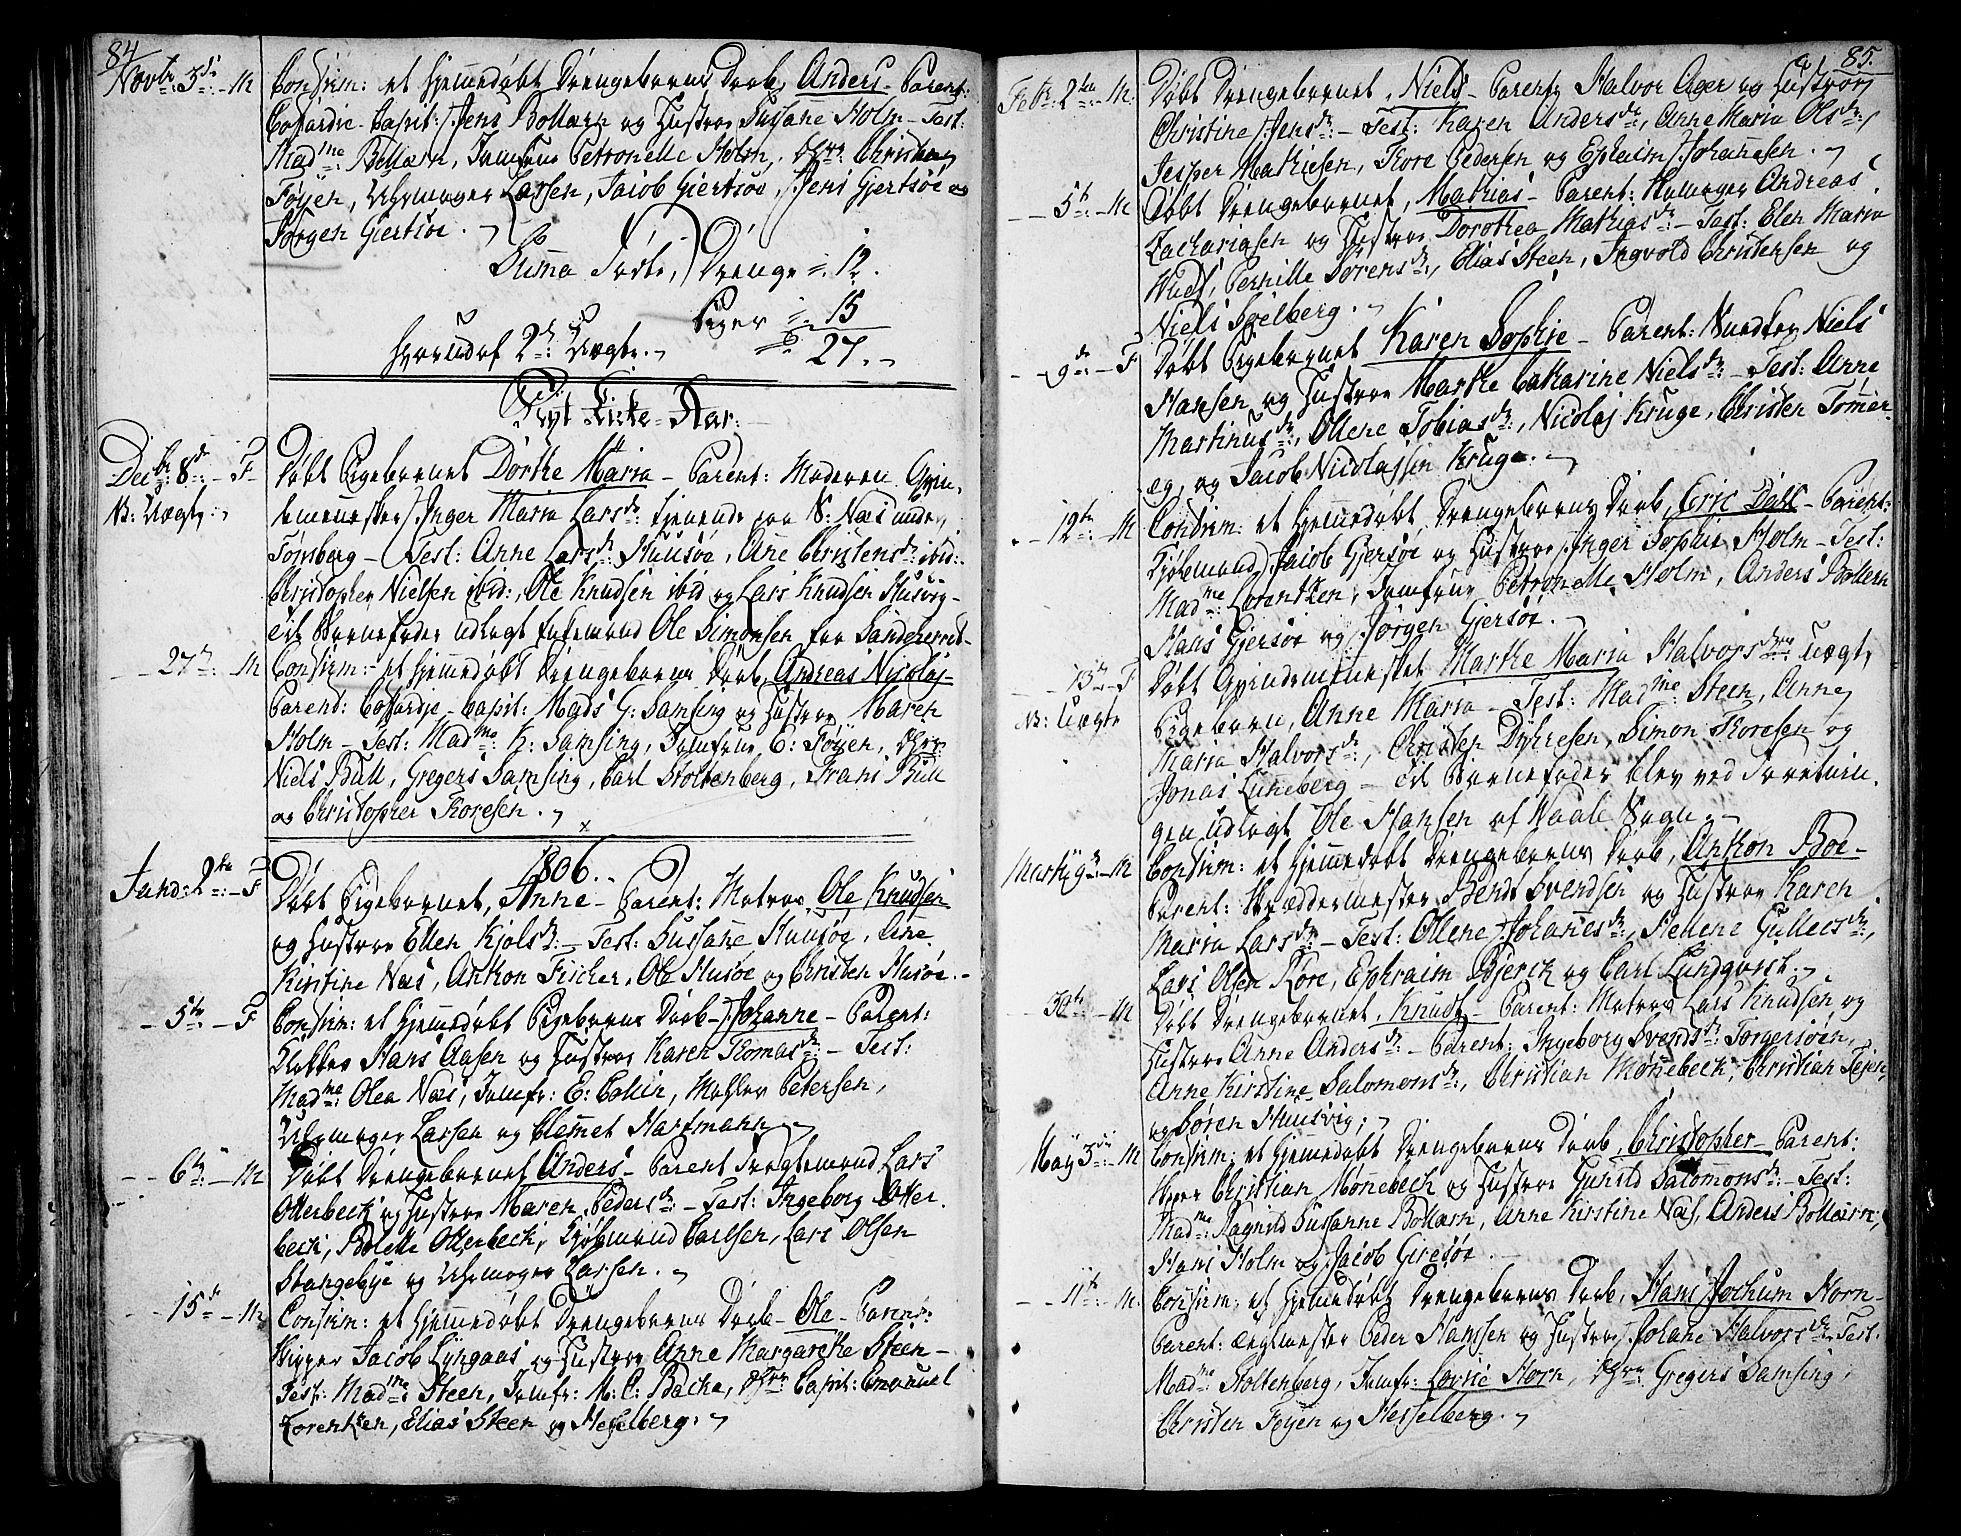 84
Novbr: 3di: - M Confirm: et hjemmedøbt Drengebarns Daab, Anders - Parent:
Coffardie-Capit: Jens Bollærn og Hustrue Susane Holm - Test:
Madme: Bollærn, Jomfrue Petronelle Holm, Hrr: Christen
Føyen, Uhrmager Larsen, Jacob Giertsøe, Jens Gjertsøe og
Jørgen Giertsøe.
Suma Fødte, Drenge = 12.
Piger = 15
hvoraf 2de: Uægte. 27.
Nyt Kirke-Aar.
Decbr: 8de: - F Døbt Pigebarnet Dorthe Maria - Parent: Moderen Qvin-
N: Uægte demennesket Inger Maria Larsdr: tjenende paa N: Næs under
Tønsberg - Test: Anne Larsdr: Huusøe, Ane Christensdr: ibid:
Christopher Nielsen ibid:, Ole Knudsen ibid og Lars Knudsen Husvig -
Til Barnefader udlagt Ole Simonsen fra
- 27de: - M Confirm: et hjemmedøbt Drengebarns Daab, Andreas Nicolaj -
Parent: Coffardie-Capit: Mads G: Samsing og Hustrue Maren
Holm - Test: Madme: K: Samsing, Jomfrue E: Føyen, Hrr:
Niels Bull, Gregers Samsing, Carl Stoltenberg, Frans Bull
og Christopher Thoresen.
1806.
Janu: 2den - F Døbt Pigebarnet, Anne - Parent: Matros, Ole Knudsen
og Hustrue Ellen Kjolsdr: - Test: Sussane Huusøe, Ane
Kirstine Næs, Anthon Fischer, Ole Husøe og Christen Husøe. -
- 5te: - F Confirm: et hjemmedøbt Pigebarns Daab - Johanne - Parent:
Hans Aasen og Hustrue Karen Thomasdr: - Test:
Madme: Olea Næs, Jomfr: E: Collin, Petersen,
Uhrmager Larsen og Clemet Hartmann
- 6te: - M Døbt Drengebarnet Anders - Parent Lars
Otterbeck og Hustrue Maren Pedersdr: - Test: Ingeborg Otter-
beck, Bolette Otterbeck, Kjøbmand Carlsen, Lars Olsen
Stangebye og Uhrmager Larsen.
- 15de: - M Confirm: et hjemmedøbt Drengebarns Daab - Ole - Parent:
Skipper Jacob Lyngaas og Hustrue Anne Margarethe Steen -
Test: Madme: Steen, Jomfr: M: C: Backe, Hrr: Capit: Emanuel
Lorentzen, Elias Steen og Hesselberg.
85.
Febr: 2den: - M. Døbt Drengebarnet, Niels - Parent: Halvor Ager og Hustrue
Christine Jensdr: - Test: Karen Andersdr:, Anne Maria Olsdr:,
Jesper Mathiesen, Thore Pedersen og Ephraim Johannesen.
- - 5te: - M Døbt Drengebarnet, Mathias - Parent: Andreas
Zachariasen og Hustrue Dorothea Mathiasdr: - Test: Elen Maria
Pernille Sørensdr:, Elias Steen, Ingvold Christensen og
Niels Soelberg.
- 9de: - F Døbt Pigebarnet Karen Sophie - Parent: Snedker Niels
Hansen og Hustrue Marthe Catharine Nielsdr: - Test: Anne
Martinusdr:, Ollene Tobiasdr:, Nicolaj Kruge, Christen Tømer-
og Jacob Nicolajsen Kruge.
- 12te: - M Confirm: et hjemmedøbt Drengebarns Daab, Eric Dahl - Parent:
Kjøbmand Jacob Gjersøe og Hustrue Inger Sophie Holm - Test:
Madme: Lorentzen, Jomfrue Petronelle Holm, Anders Bollern
Hans Gjersøe og Jørgen Gjersøe.
- 13de: - F Døbt Qvindemennesket Marthe Maria Halvorsdrs: uægte
N: Uægte Pigebarn, Anne Maria - Test: Madme: Steen, Anne
Maria Halvorsdr:, Christen Dyhresen, Simon Thoresen og
Jonas Luneberg - Til Barnefader blev ved Forretnin-
gen udlagt Ole Hansen af Waale Sogn. -
Martij 9de: - M Confirm: et hjemmedøbt Drengebarns Daab, Anthon Boe -
Parent: Skræddermester Bendt Svendsen og Hustrue Karen
Maria Larsdr: - Test: Ollene Johanesdr:, Hellene Gulleesdr:,
Lars Olsen Thore, Ephraim Bjerck og Carl Lundqvist.
- 30te: - M Døbt Drengebarnet, Knudt - Parent: Matros Lars Knudsen og
Hustrue Anne Andersdr: - Parent: Ingeborg Svendsdr: Jørgersøen,
Anne Kirstine Salomonsdr:, Christian Mønebeck, Christian Feyen,
og Søren Huusvig;
May 3die: - M Confirm: et hjemmedøbt Drengebarns Daab, Christopher - Parent:
Christian Mønebeck og Hustrue Gunild Salomonsdr: - Test:
Madme: Ragnild Sussanne Bollærn, Anne Kirstine Næs, Anders Bollærn,
Hans Holm og Jacob Giresøe.
- - 11te: - M. Confirm: et hjemmedøbt Drengebarns Daab, Hans Jochum Horn -
Parent: Peder Hansen og Hustrue Johane Halvorsdr: - Test:
Madme: Stoltenberg, Jomfr: Lovise Horn, Hrr: Gregers Samsing,
Christen Feyen og Hesselberg.